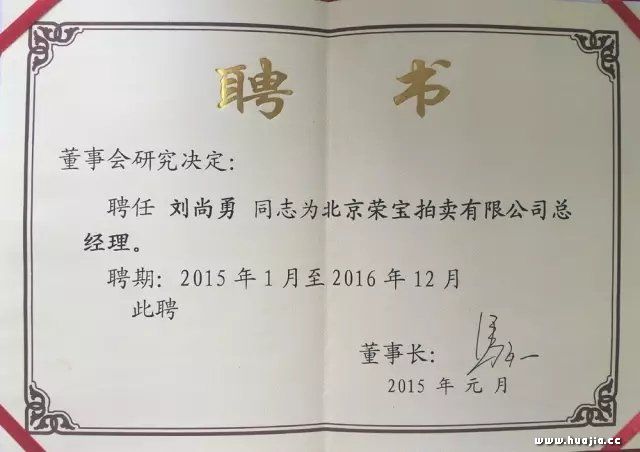 聘 书
董事会研究决定：
聘任 刘尚勇 同志为北京荣宝拍卖有限公司总
经理。
聘期：2015 年 1 月至 2016 年 12 月
此聘
董事长：
2015 年 元 月
www.huajia.cc